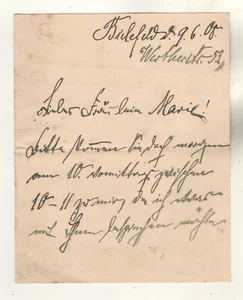 Bielefeld d. 9.6.08
Wertherstr. 32
Liebes Fräulein Marie!
Bitte kommen Sie doch morgen
am 10. vormittags zwischen
10-11 zu mir, da ich etwas
mit Ihnen besprechen möchte